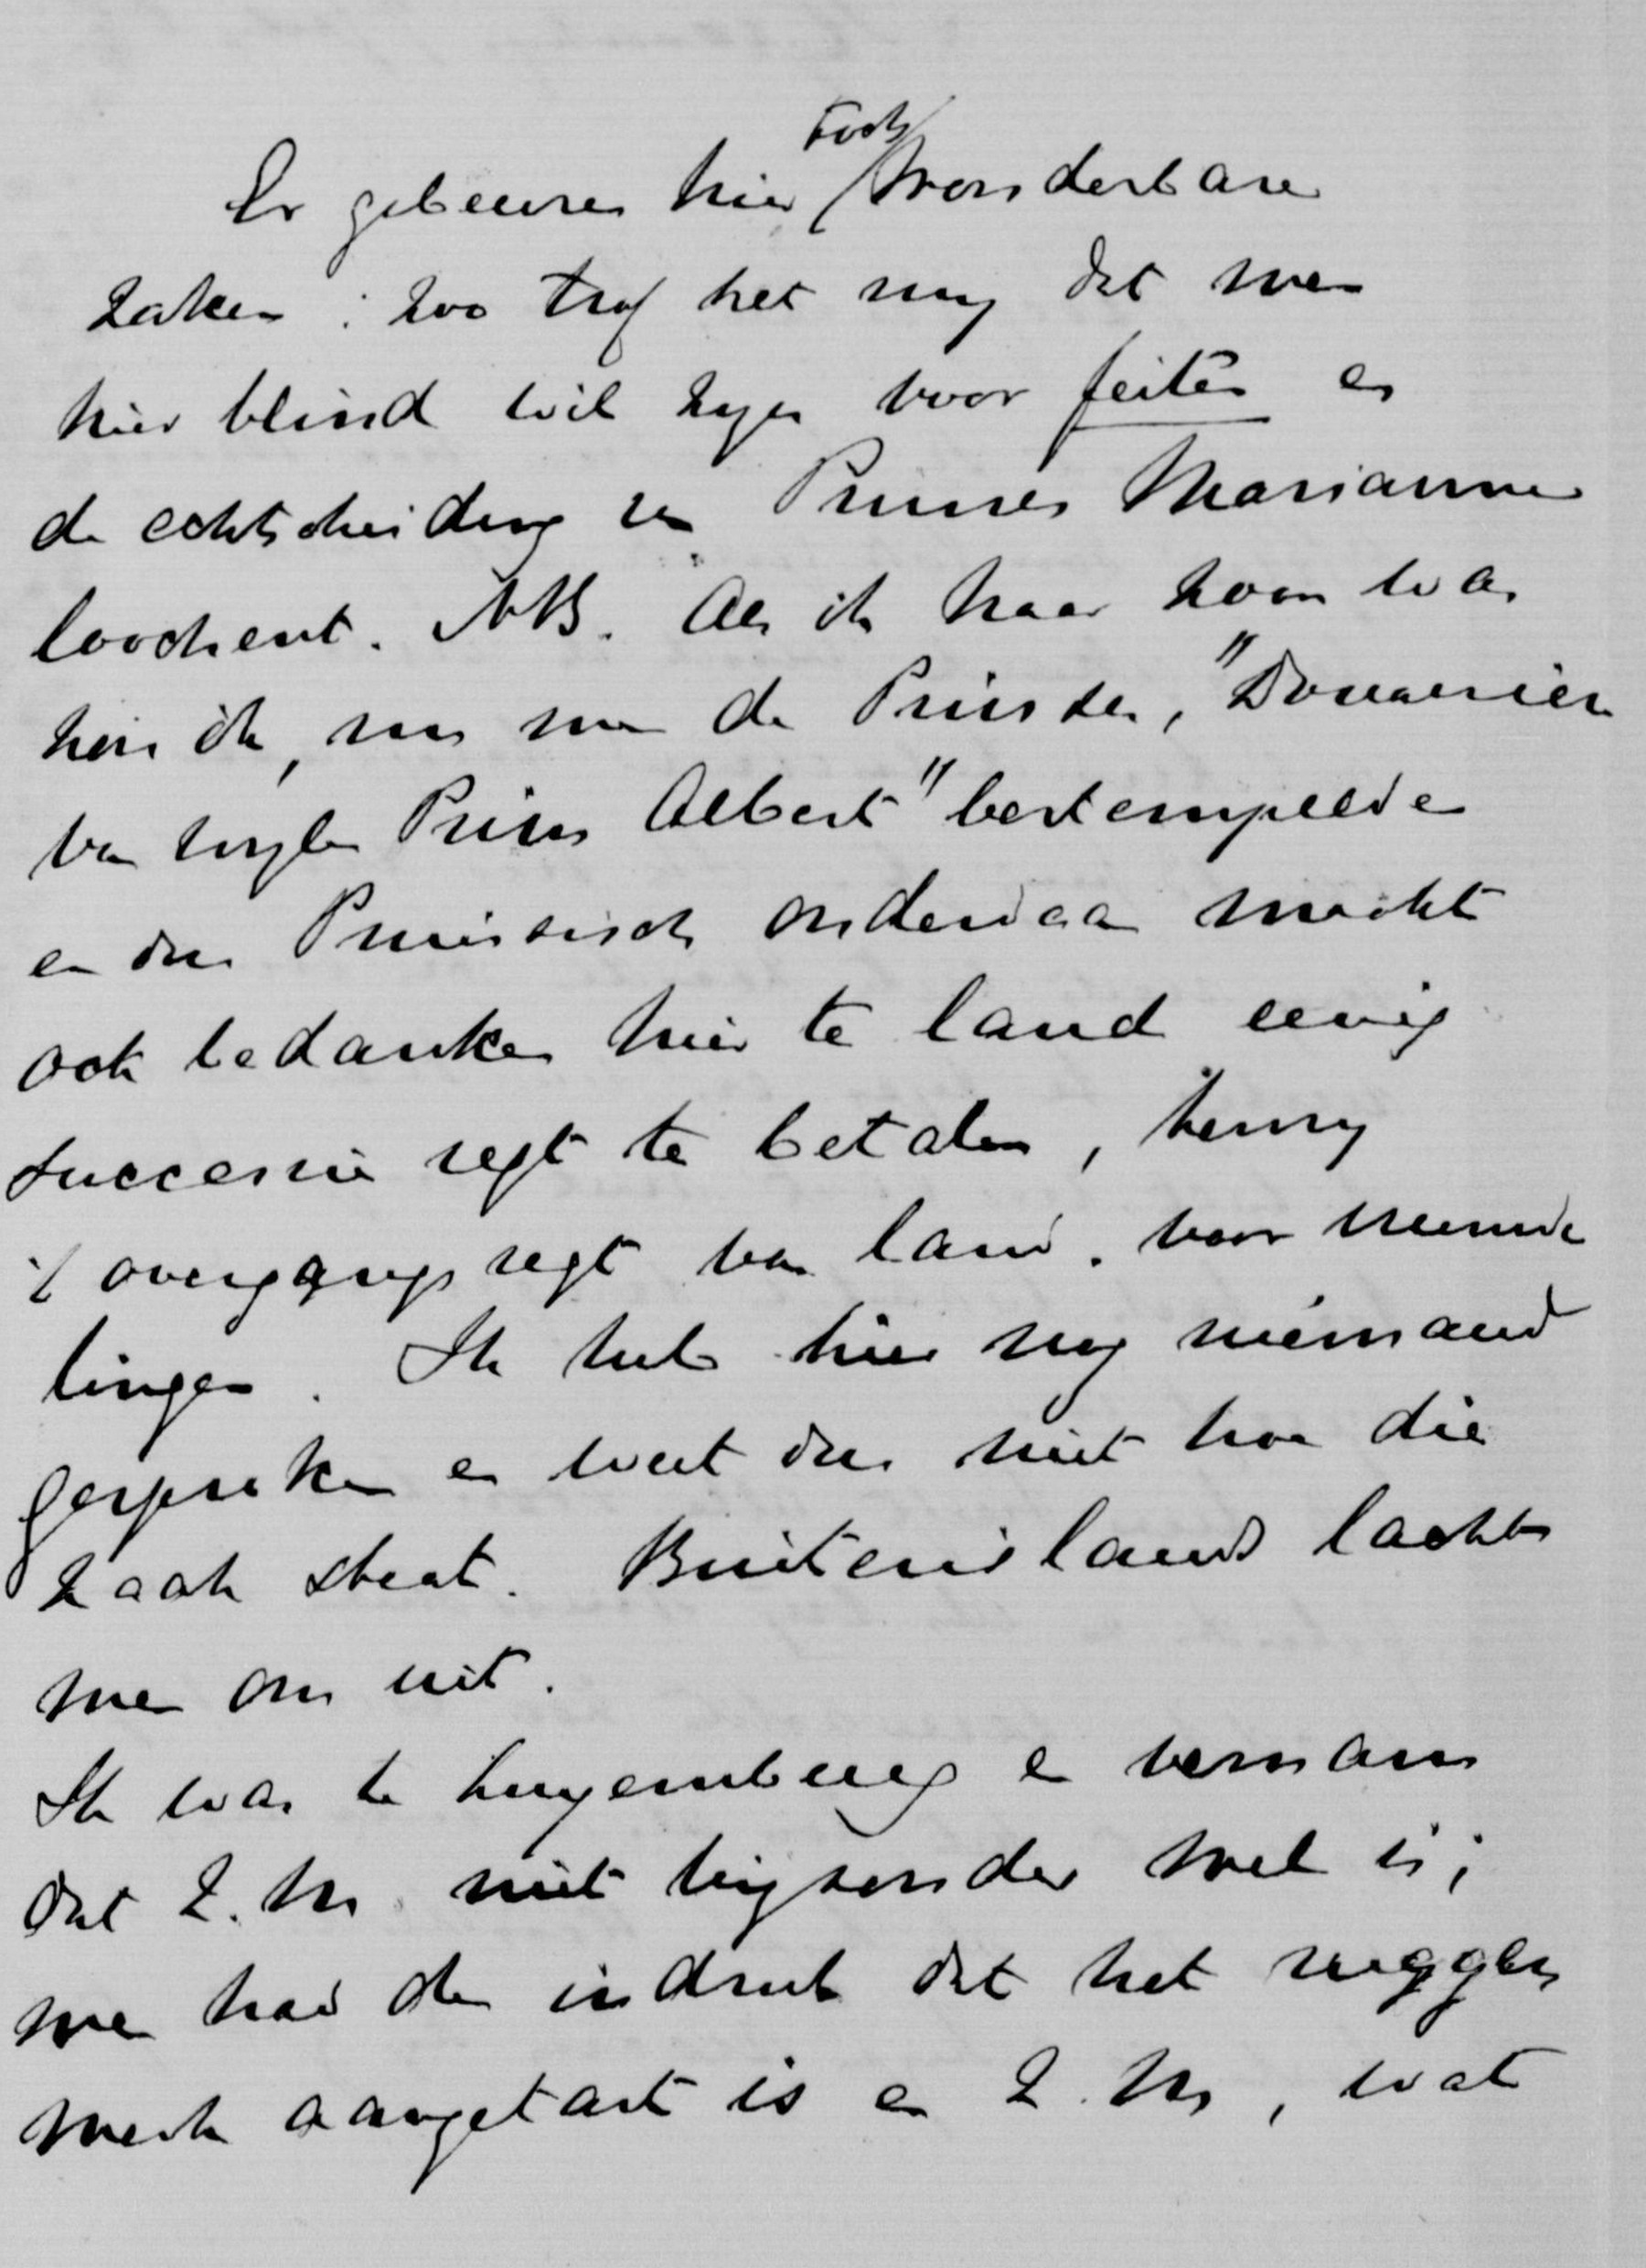 Er gebeuren hier toch wonderbare
zaken : zoo trof het mij dat men
hier blind wil zijn voor feiten en
de echtscheiding van Prinses Marianne
loochent. NB. Als ik haar zoon was
hen ik, nu men de Prinses, "Douairière
van wijlen Prins Albert" bestempelde
en dus Pruissisch onderdaan mocht
ook bedanken hier te land eenig
successie regt te betalen, tenzij
't overgangs regt van land. voor vreemde
lingen. Ik heb hier nog niemand
gesproken en weet dus niet hoe die
zaak staat. Buitenslands lachte
men ons uit.
Ik was te Luxemburg en vernam
dat Z. M. niet bijzonder wel is;
men had den indruk dat het rugge
merk aangetast is en Z. M, wat